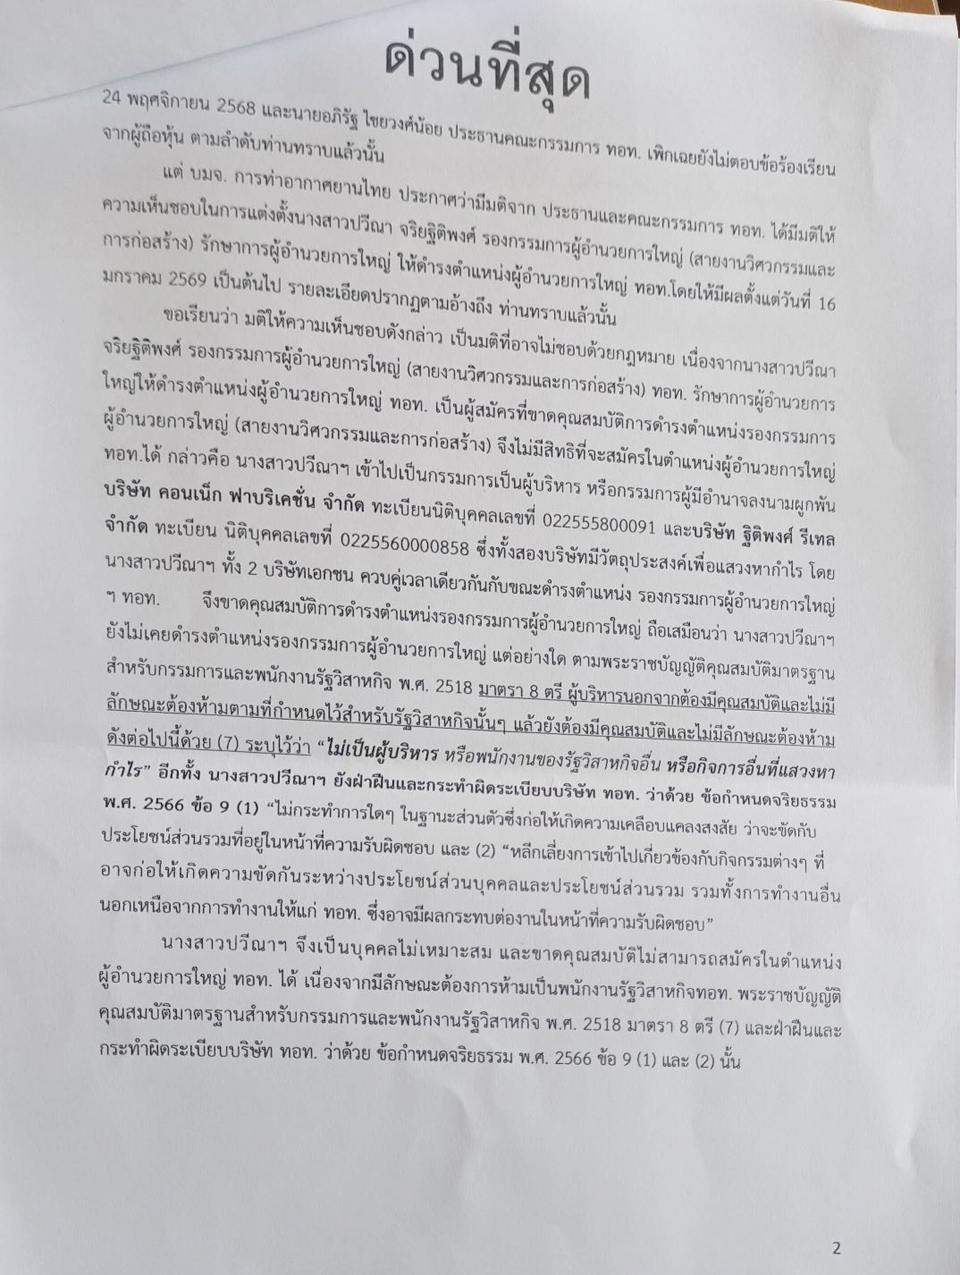 ด่วนที่สุด
24 พฤศจิกายน 2568 และนายอภิรัฐ ไชยวงศ์น้อย ประธานคณะกรรมการ ทอท. เพิกเฉยยังไม่ตอบข้อร้องเรียน
จากผู้ถือหุ้น ตามลำดับท่านทราบแล้วนั้น
แต่ บมจ. การท่าอากาศยานไทย ประกาศว่ามีมติจาก ประธานและคณะกรรมการ ทอท. ได้มีมติให้
ความเห็นชอบในการแต่งตั้งนางสาวปวีณา จริยฐิติพงศ์ รองกรรมการผู้อำนวยการใหญ่ (สายงานวิศวกรรมและ
การก่อสร้าง) รักษาการผู้อำนวยการใหญ่ ให้ดำรงตำแหน่งผู้อำนวยการใหญ่ ทอท.โดยให้มีผลตั้งแต่วันที่ 16
มกราคม 2569 เป็นต้นไป รายละเอียดปรากฏตามอ้างถึง ท่านทราบแล้วนั้น
ขอเรียนว่า มติให้ความเห็นชอบดังกล่าว เป็นมติที่อาจไม่ชอบด้วยกฎหมาย เนื่องจากนางสาวปวีณา
จริยฐิติพงศ์ รองกรรมการผู้อำนวยการใหญ่ (สายงานวิศวกรรมและการก่อสร้าง) ทอท. รักษาการผู้อำนวยการ
ใหญ่ให้ดำรงตำแหน่งผู้อำนวยการใหญ่ ทอท. เป็นผู้สมัครที่ขาดคุณสมบัติการดำรงตำแหน่งรองกรรมการ
ผู้อำนวยการใหญ่ (สายงานวิศวกรรมและการก่อสร้าง) จึงไม่มีสิทธิที่จะสมัครในตำแหน่งผู้อำนวยการใหญ่
ทอท.ได้ กล่าวคือ นางสาวปวีณาฯ เข้าไปเป็นกรรมการเป็นผู้บริหาร หรือกรรมการผู้มีอำนาจลงนามผูกพัน
บริษัท คอนเน็ก ฟาบริเคชั่น จำกัด ทะเบียนนิติบุคคลเลขที่ 022555800091 และบริษัท ฐิติพงศ์ รีเทล
จำกัด ทะเบียน นิติบุคคลเลขที่ 0225560000858 ซึ่งทั้งสองบริษัทมีวัตถุประสงค์เพื่อแสวงหากำไร โดย
นางสาวปวีณาฯ ทั้ง 2 บริษัทเอกชน ควบคู่เวลาเดียวกันกับขณะดำรงตำแหน่ง รองกรรมการผู้อำนวยการใหญ่
ฯ ทอท. จึงขาดคุณสมบัติการดำรงตำแหน่งรองกรรมการผู้อำนวยการใหญ่ ถือเสมือนว่า นางสาวปวีณาฯ
ยังไม่เคยดำรงตำแหน่งรองกรรมการผู้อำนวยการใหญ่ แต่อย่างใด ตามพระราชบัญญัติคุณสมบัติมาตรฐาน
สำหรับกรรมการและพนักงานรัฐวิสาหกิจ พ.ศ. 2518 มาตรา 8 ตรี ผู้บริหารนอกจากต้องมีคุณสมบัติและไม่มี
ลักษณะต้องห้ามตามที่กำหนดไว้สำหรับรัฐวิสาหกิจนั้นๆ แล้วยังต้องมีคุณสมบัติและไม่มีลักษณะต้องห้าม
ดังต่อไปนี้ด้วย (7) ระบุไว้ว่า “ไม่เป็นผู้บริหาร หรือพนักงานของรัฐวิสาหกิจอื่น หรือกิจการอื่นที่แสวงหา
กำไร” อีกทั้ง นางสาวปวีณาฯ ยังฝ่าฝืนและกระทำผิดระเบียบบริษัท ทอท. ว่าด้วย ข้อกำหนดจริยธรรม
พ.ศ. 2566 ข้อ 9 (1) “ไม่กระทำการใดๆ ในฐานะส่วนตัวซึ่งก่อให้เกิดความเคลือบแคลงสงสัย ว่าจะขัดกับ
ประโยชน์ส่วนรวมที่อยู่ในหน้าที่ความรับผิดชอบ และ (2) “หลีกเลี่ยงการเข้าไปเกี่ยวข้องกับกิจกรรมต่างๆ ที่
อาจก่อให้เกิดความขัดกันระหว่างประโยชน์ส่วนบุคคลและประโยชน์ส่วนรวม รวมทั้งการทำงานอื่น
นอกเหนือจากการทำงานให้แก่ ทอท. ซึ่งอาจมีผลกระทบต่องานในหน้าที่ความรับผิดชอบ”
นางสาวปวีณาฯ จึงเป็นบุคคลไม่เหมาะสม และขาดคุณสมบัติไม่สามารถสมัครในตำแหน่ง
ผู้อำนวยการใหญ่ ทอท. ได้ เนื่องจากมีลักษณะต้องการห้ามเป็นพนักงานรัฐวิสาหกิจทอท. พระราชบัญญัติ
คุณสมบัติมาตรฐานสำหรับกรรมการและพนักงานรัฐวิสาหกิจ พ.ศ. 2518 มาตรา 8 ตรี (7) และฝ่าฝืนและ
กระทำผิดระเบียบบริษัท ทอท. ว่าด้วย ข้อกำหนดจริยธรรม พ.ศ. 2566 ข้อ 9 (1) และ (2) นั้น
2